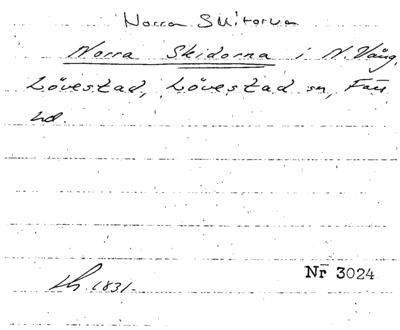 Norra Skitorna
Norra Skidorna i N. Vång,
Lövestad, Lövestad sn, Färs
hd.
Nr 3024
Lh. 1831.